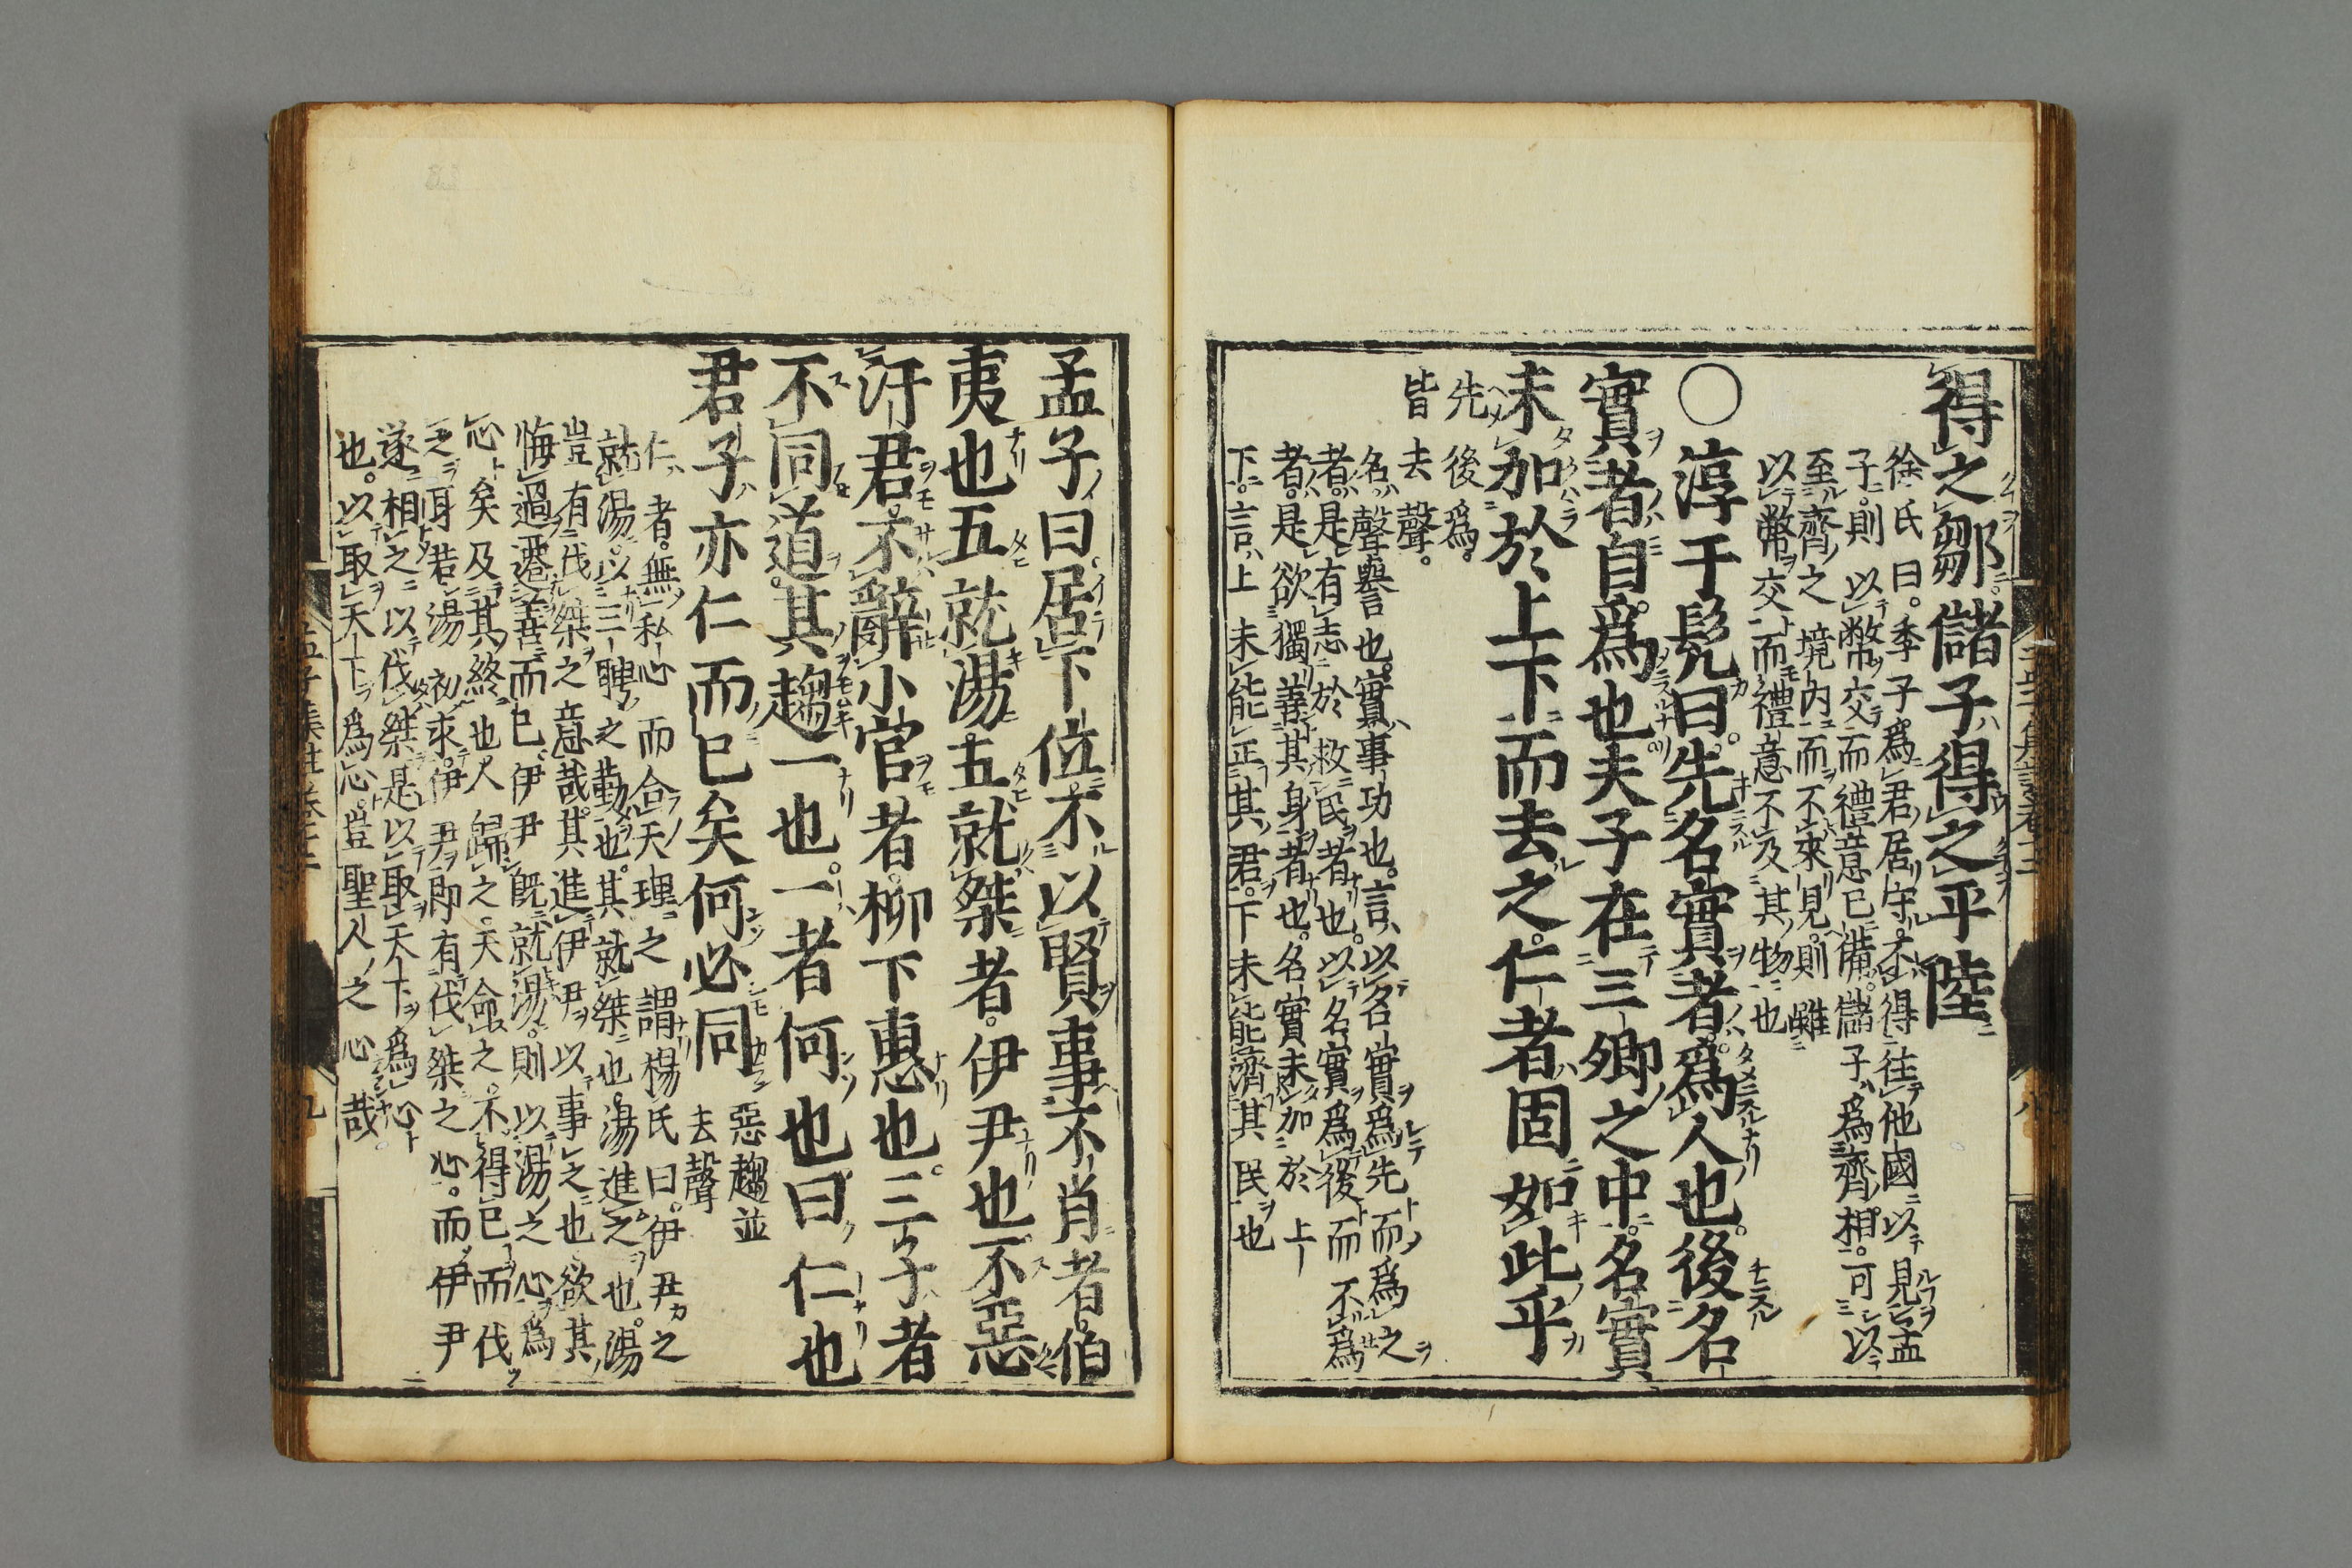 得之鄒儲子得之平陸
徐氏曰季子爲君居守不得往他國以見孟
子則以幣交而禮意已備儲子爲齊相可以
至齊之境內而不來見則雖
以幣交而禮意不及其物也
○淳于髡曰先名實者爲人也後名
實者自爲也夫子在三卿之中名實
未加於上下而去之仁者固如此乎
先後爲
皆去聲
名聲譽也實事功也言以名實爲先而爲之
者是有志於救民者也以名實爲後而不爲
者是欲獨善其身者也名實未加於上
下言上未能正其君下未能濟其民也
孟子曰居下位不以賢事不肖者伯
夷也五就湯五就桀者伊尹也不惡
汙君不辭小官者柳下惠也三子者
不同道其趨一也一者何也曰仁也
君子亦仁而已矣何必同
惡趨並
去聲
仁者無私心而合天理之謂楊氏曰伊尹之
就湯以三聘之勤也其就桀也湯進之也湯
豈有伐桀之意哉其進伊尹以事之也欲其
悔過遷善而已伊尹旣就湯則以湯之心爲
心矣及其終也人歸之天命之不得已而伐
之耳若湯初求伊尹即有伐桀之心而伊尹
遂相之以伐桀是以取天下爲心
也以取天下爲心豈聖人之心哉